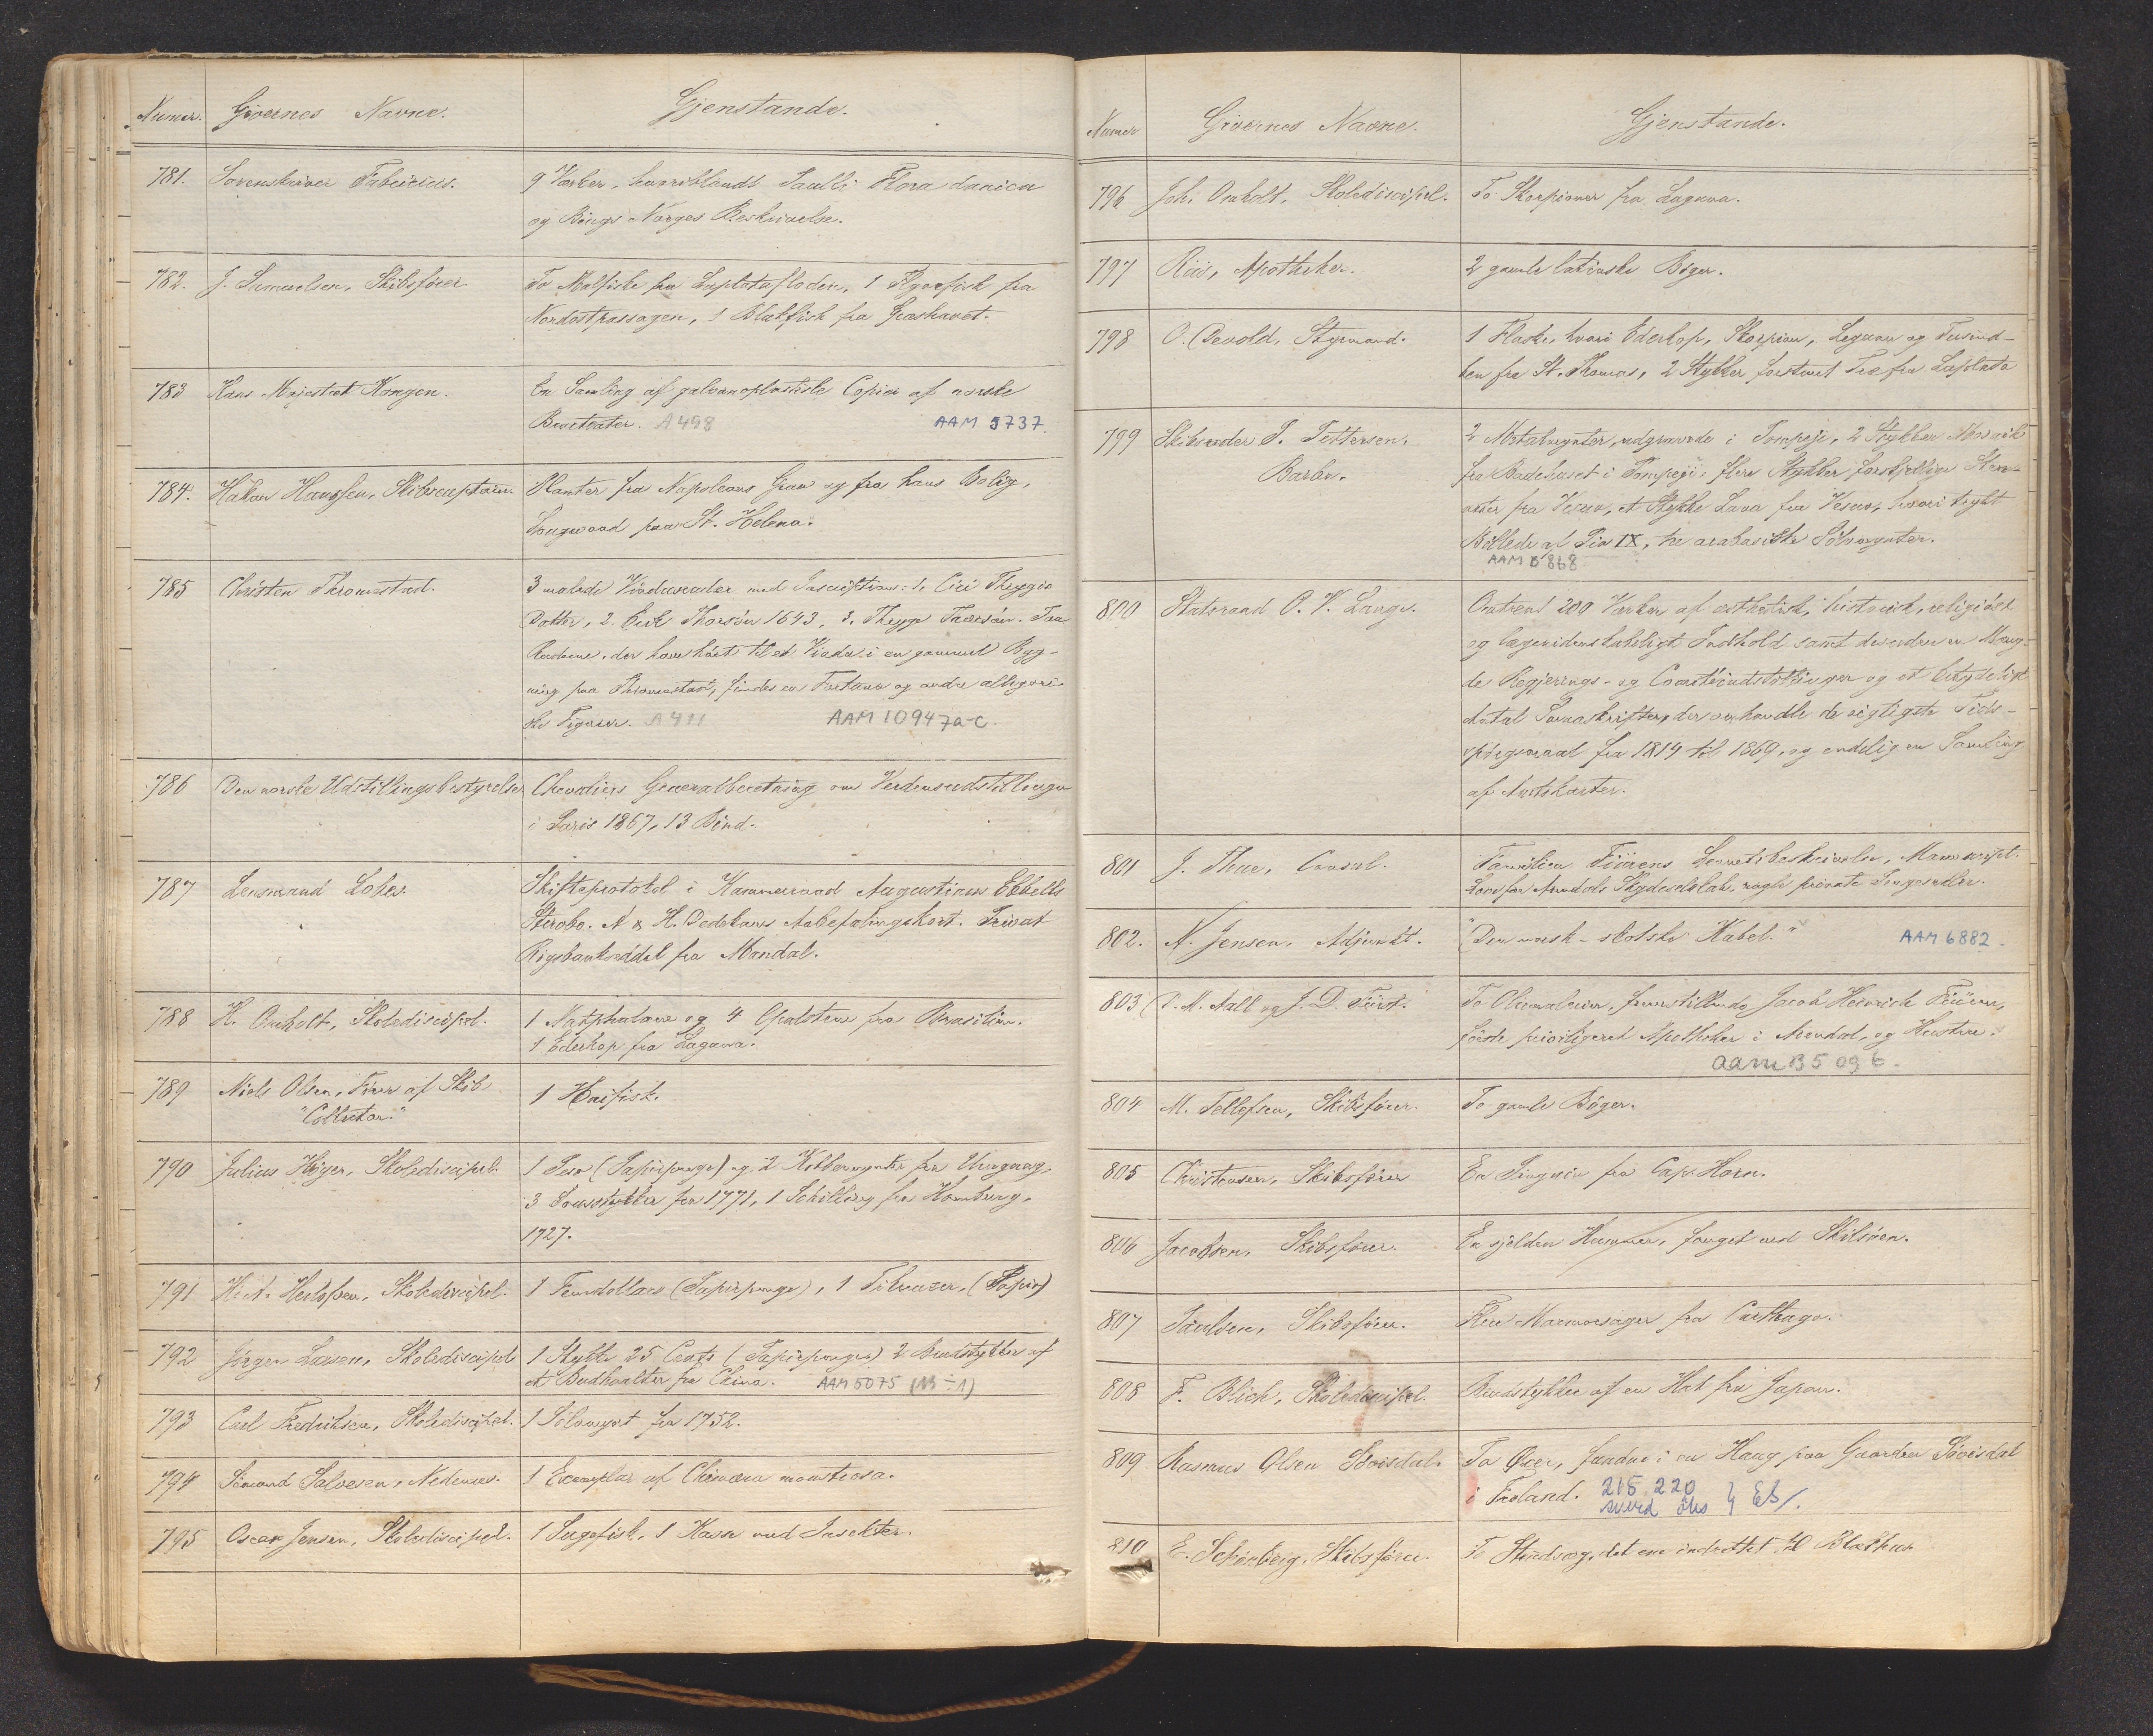 Numer. Givernes Navne. Gjenstande.
781. Sorenskriver Fabricius. 9 Værker, hvoriblandt Paulli Flora danica
og Bings Norges Beskrivelse.
782. J. Samuelsen, Skibsfører. To Malfiske fra Laplatafloden, 1 Flyvefisk fra
Nordostpassagen, 1 Blækfisk fra Græshavet.
783 Hans Majestæt Kongen. En Samling af galvanoplastiske Copier af norske
Bracteater. A 498 AAM 5737.
784. Håkon Hanssen, Skibscaptain Planter fra Napoleons Grav og fra hans Bolig,
Longwood paa St. Helena.
785 Christen Thromestad. 3 malede Vinduesruder med Inscription: 1.
Datter, 2. 1643, 3.
Ruderne, der have hört til et Vindu i en gammel Byg-
ning paa Thromestad, findes en Fortuna og andre allegori-
ske Figurer. A 411 AAM 10947a-c.
786 Den norske Udstillingsbestyrelse Chevaliers Generalberetning om Verdensudstillingen
i Paris 1867, 13 Bind.
787 Lensmand Skifteprotokol i Kammerraad Augustinus Ebbells
Sterbo. N & H. Dedekams Anbefalingskort. Privat
Rigsbankseddel fra Mandal.
788 H. Omholt, Skolediscipel. 1 og 4 Opalstene fra Brasilien.
1 Ederkop fra Laguna.
789 Niels Olsen, Förer af Skib 1 Haifisk.
"Collector."
790 Julius Höyer, Skolediscipel. 1 Peso (Papirpenge) og 2 Kobbermynter fra Uruguay,
3 Sousstykker fra 1771, 1 Schilling fra Hamburg,
1727.
791 Skolediscipel. 1 Femdollars (Papirpenge), 1 (Papir)
792 Jörgen Larsen, Skolediscipel 1 Stykke 25 Cents (Papirpenge) 2 Brudstykker af
et Budhaalter fra China. AAM 5075 (113-1)
793 Carl Fredriksen, Skolediscipel. 1 Sölvmynt fra 1752.
794 Sömand Salvesen, Nedenæs. 1 Exemplar af Chimæra monstrosa.
795 Oscar Jensen, Skolediscipel. 1 Sugefisk, 1 Kasse med Insekter.
Numer Givernes Navne. Gjenstande.
796 Joh. Omholt, Skolediscipel. To Skorpioner fra Laguna.
797 Riis, Apotheker. 2 gamle latinske Bøger.
798 O. Devold, Styrmand. 1 Flaske, hvori Ederkop, Skorpion, Leguan og Tusind-
ben fra St. Thomas, 2 Stykker forstenet Træ fra Laplata
799 Skibsreder P. Pettersen, 2 Metalmynter, udgravede i Pompeji, 2 Stykker Mosaik
Barbu. fra Badehuset i Pompeji, flere Stykker forskjellige Sten-
arter fra Vesuv, et Stykke Lava fra Vesuv, hvori trykt
Billede af Pio IX, tre arabiske Sölvmynter.
AAM 5868
800 Statsraad O. V. Lange. Omtrent 200 Værker af æsthetisk, historisk, religiöst
og lægevidenskabeligt Indhold samt desuden en Mæng-
de Regjerings- og Comiteindstillinger og et betydeligt
Antal Smaaskrifter, der omhandle de vigtigste Tids-
spörgsmaal fra 1814 til 1869, og endelig en Samling
af Amtskarter.
801 J. Thue, Consul. Familien Fürens Levnetsbeskrivelse, Manuscript.
Love for Arendals Skydeselskab, nogle private Pengesedler.
802. N. Jensen, Adjunkt. "Den norsk-skotske Kabel." AAM 6882.
803 P. M. Aall og J. D. Fürst. To Oliemalerier, fremstillende Jacob Heinrich Füren,
förste priviligeret Apotheker i Arendal, og Hustru.
AAM B5 096.
804 M. Tellefsen, Skibsfører. To gamle Böger.
805 Christensen, Skibsfører En Pingvin fra Cap Horn.
806 Jacobsen, Skibsfører. En sjelden Hummer, fanget ved Skilsöen.
807 Paulsen, Skibsfører. Flere Marmorsager fra Carthago.
808 F. Blich, Skolediscipel. Brudstykke af en Hat fra Japan.
809 Rasmus Olsen To Öxer, fundne i en Haug paa Gaarden
i Froland. 215 220
sverd öks } Eb/.
810 E. Schönberg, Skibsfører. To Straadværg, det ene indrettet til Blækhus